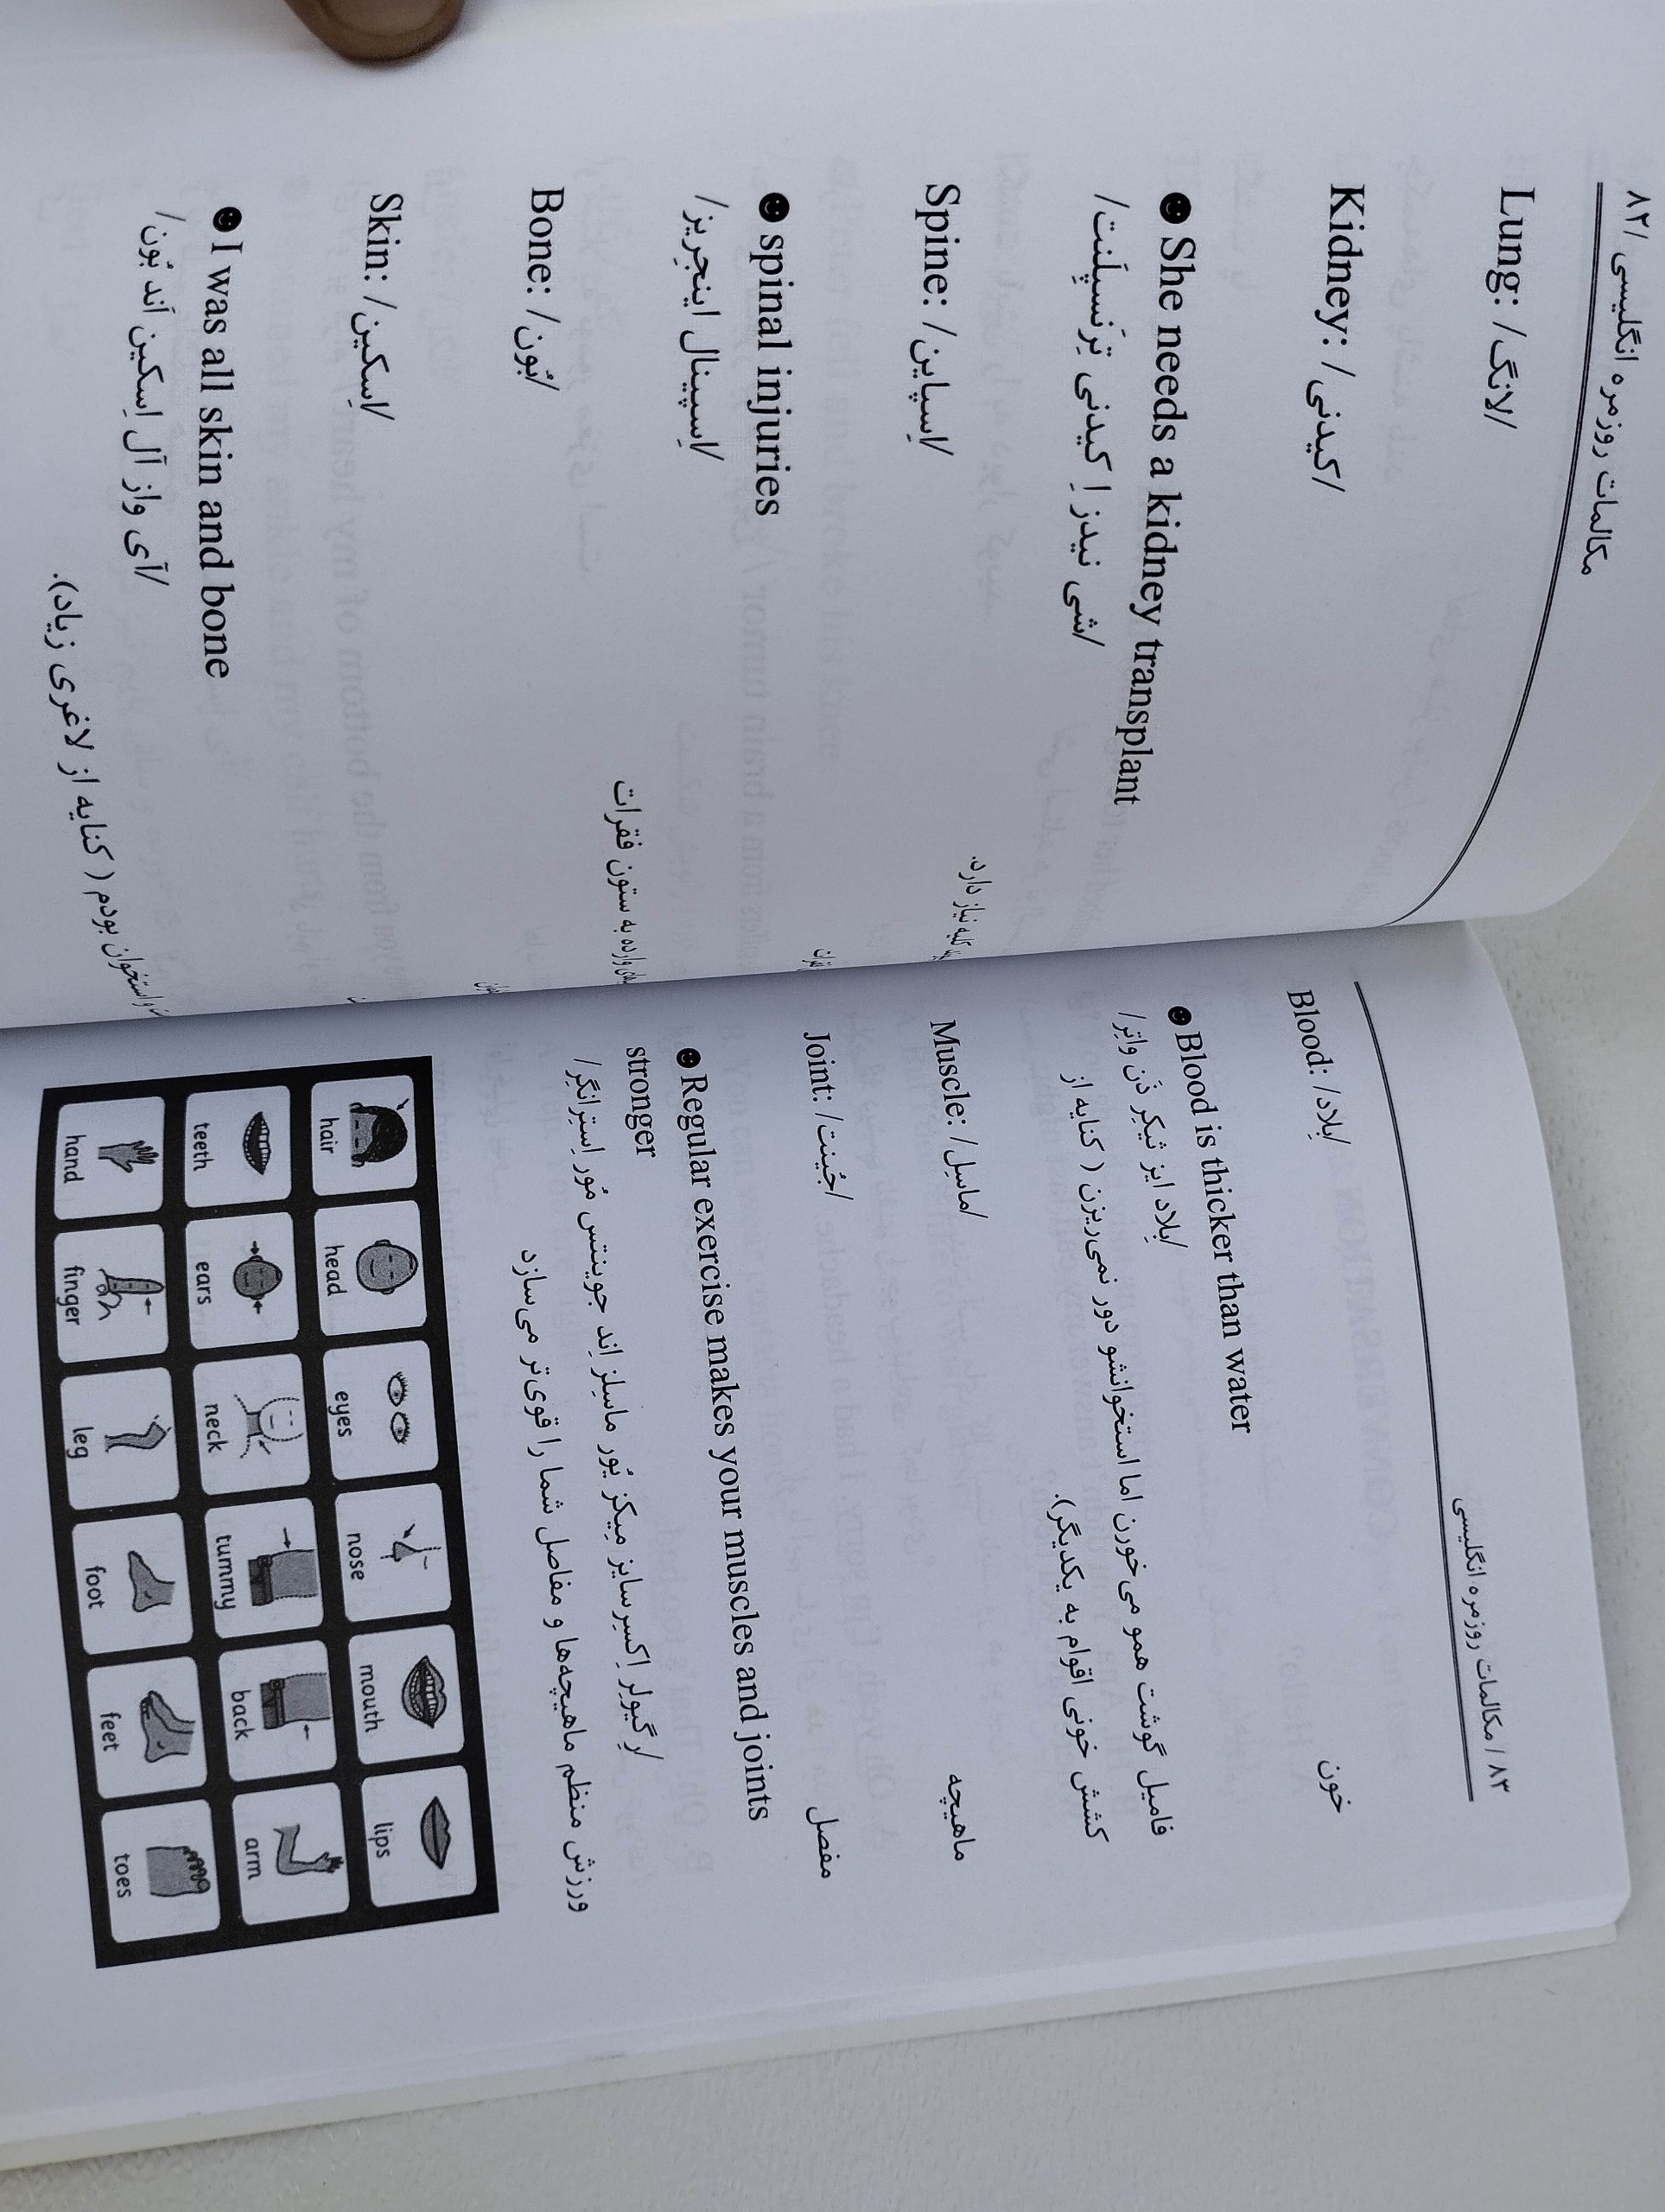 ۸۲/ مکالمات روزمره انگلیسی
Lung: /لانگ/
Kidney: /کیدنی/
She needs a kidney transplant
/شی نیدز اِ کیدنی تِرَنسپِلَنت/
کلیه نیاز دارد.
Spine: /اِسپاین/
spinal injuries
/اِسپینال اینجِریز/
وارده به ستون فقرات
Bone: /بُون/
Skin: /اِسکین/
I was all skin and bone
/آی واز آل اِسکین اَند بُون/
و استخوان بودم (کنایه از لاغری زیاد).
۸۳ / مکالمات روزمره انگلیسی
Blood: /بِلاد/ خون
Blood is thicker than water
/بِلاد ایز ثیکِر دَن واتِر/
فامیل گوشت همو می‌خورن اما استخوانشو دور نمی‌ریزن (کنایه از
کشش خونی اقوام به یکدیگر).
Muscle: /ماسِل/ ماهیچه
Joint: /جُینت/ مفصل
Regular exercise makes your muscles and joints
stronger
/رِگیولِر اِکسِرسایز مِیکز یُور ماسِلز اِند جوینتس مُور اِستِرانگِر/
ورزش منظم ماهیچه‌ها و مفاصل شما را قوی‌تر می‌سازد
hair head eyes nose mouth lips
teeth ears neck tummy back arm
hand finger leg foot feet toes